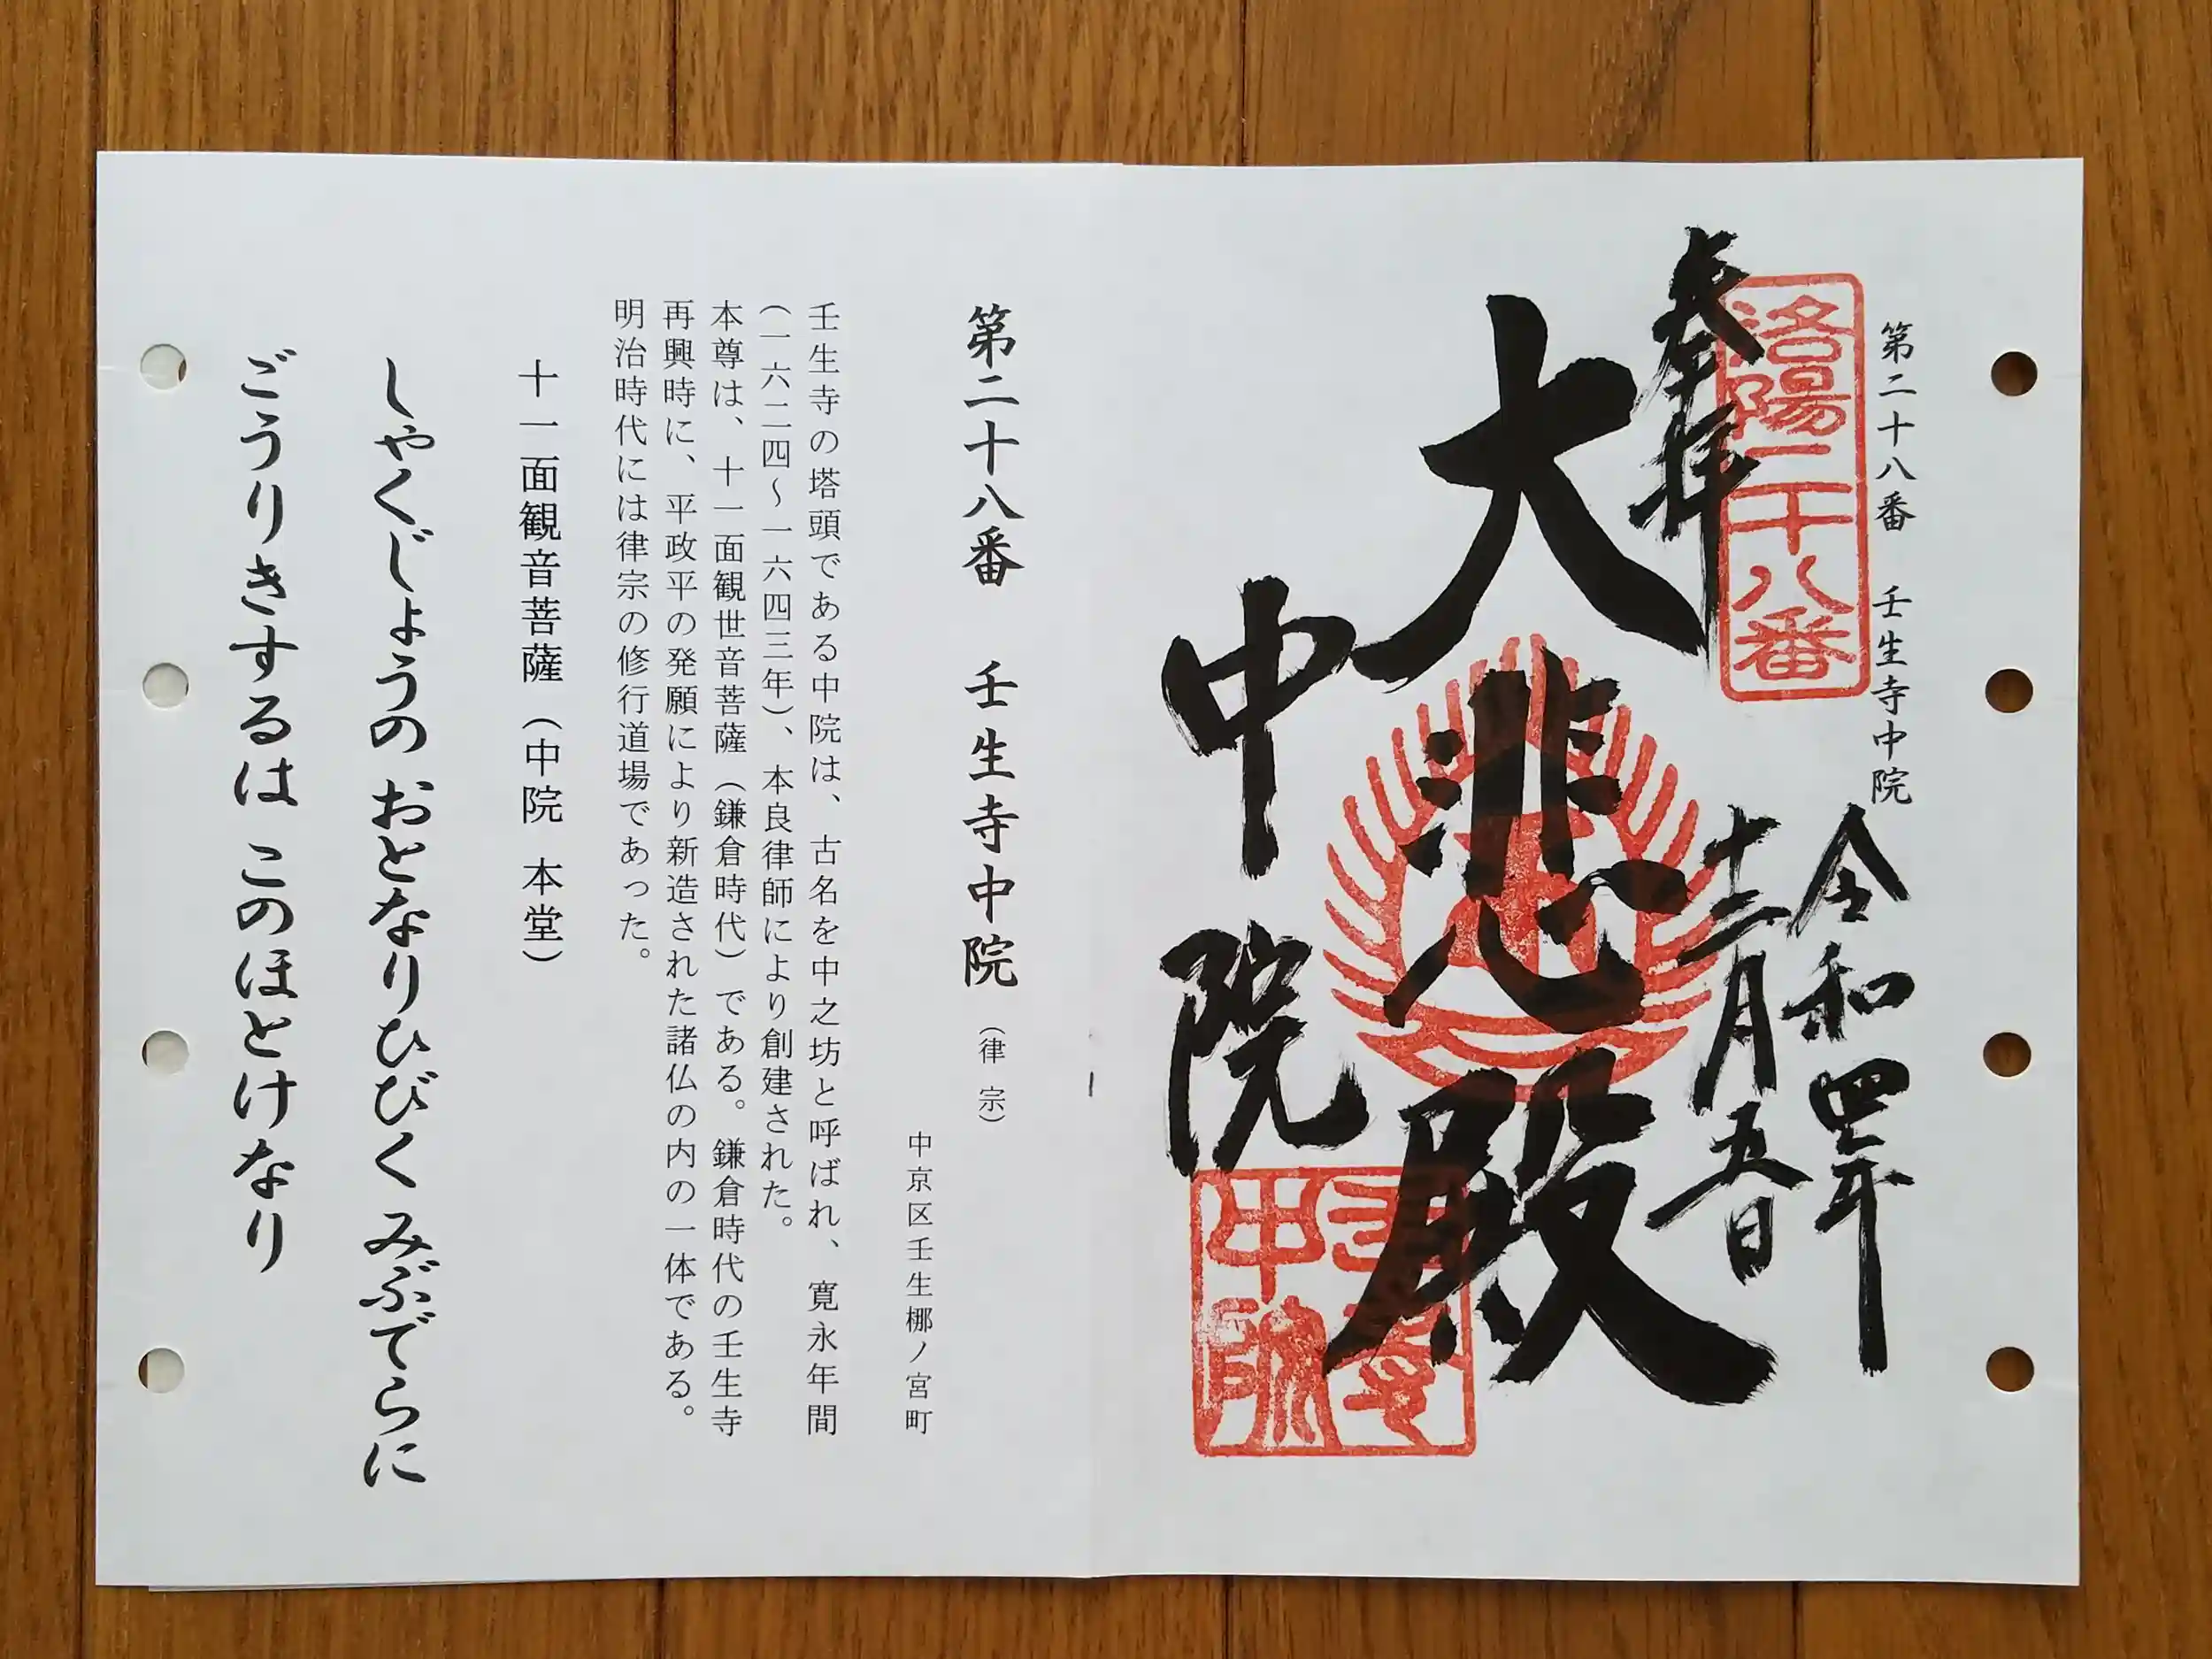 第二十八番 壬生寺中院
洛陽二十八番
奉拝
令和四年
十二月五日
大悲殿
中院
第二十八番 壬生寺中院（律宗）
中京区壬生梛ノ宮町
壬生寺の塔頭である中院は、古名を中之坊と呼ばれ、寛永年間
（一六二四～一六四三年）、本良律師により創建された。
本尊は、十一面観世音菩薩（鎌倉時代）である。鎌倉時代の壬生寺
再興時に、平政平の発願により新造された諸仏の内の一体である。
明治時代には律宗の修行道場であった。
十一面観音菩薩（中院 本堂）
しゃくじょうの おとなりひびく みぶでらに
ごうりきするは このほとけなり